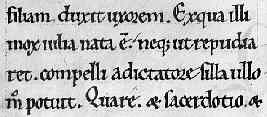 filiam duxit uxorem. Exqua illi
mox iulia nata ē. neq; ut repudia
ret. compelli adictatore silla ullo
m̊ potuit. Quare. & sacerdotio. &